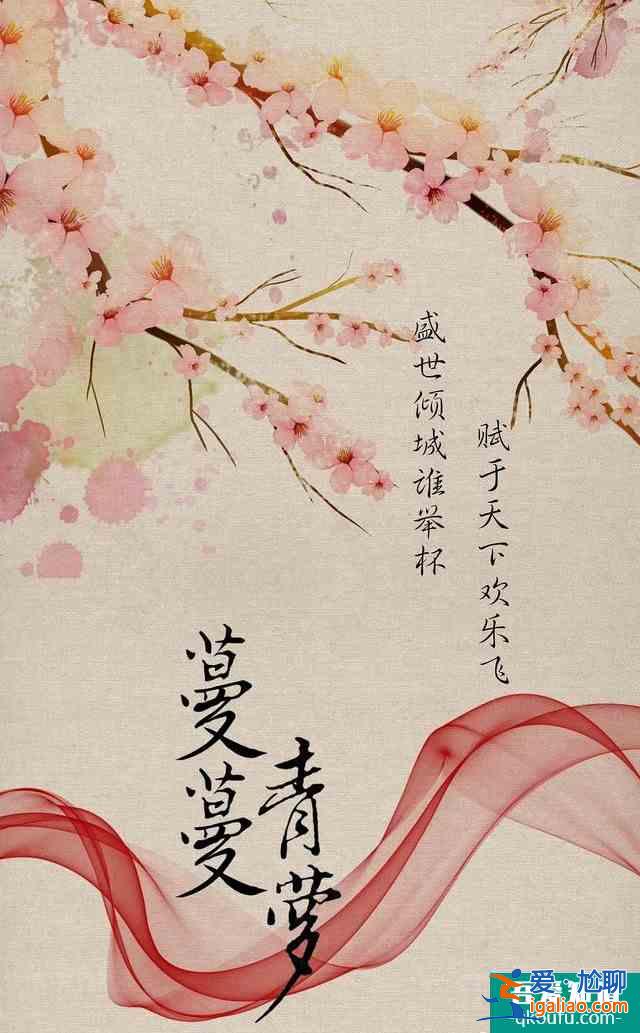 盛世倾城谁举杯
赋于天下欢乐飞
蔓蔓
青萝
爱·尬聊
igaliao.com